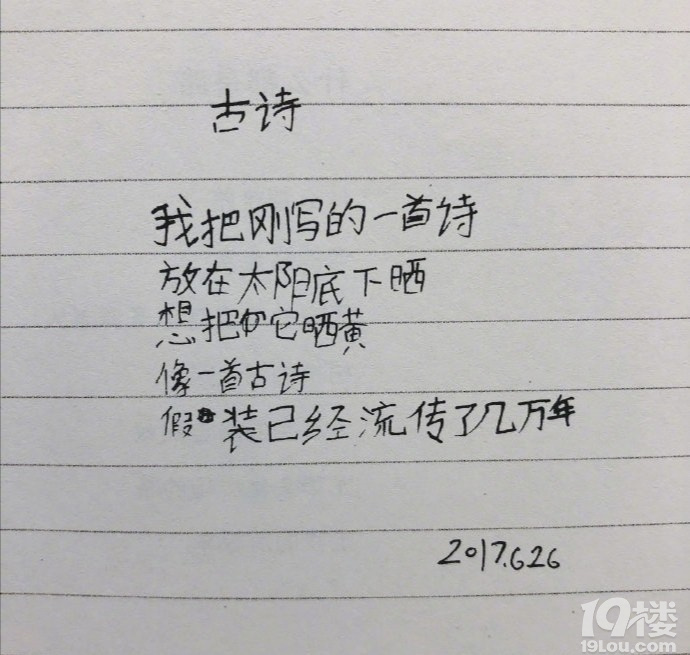 古诗
我把刚写的一首诗
放在太阳底下晒
想把它晒黄
像一首古诗
假装已经流传了几万年
2017.6.26
19楼
19lou.com